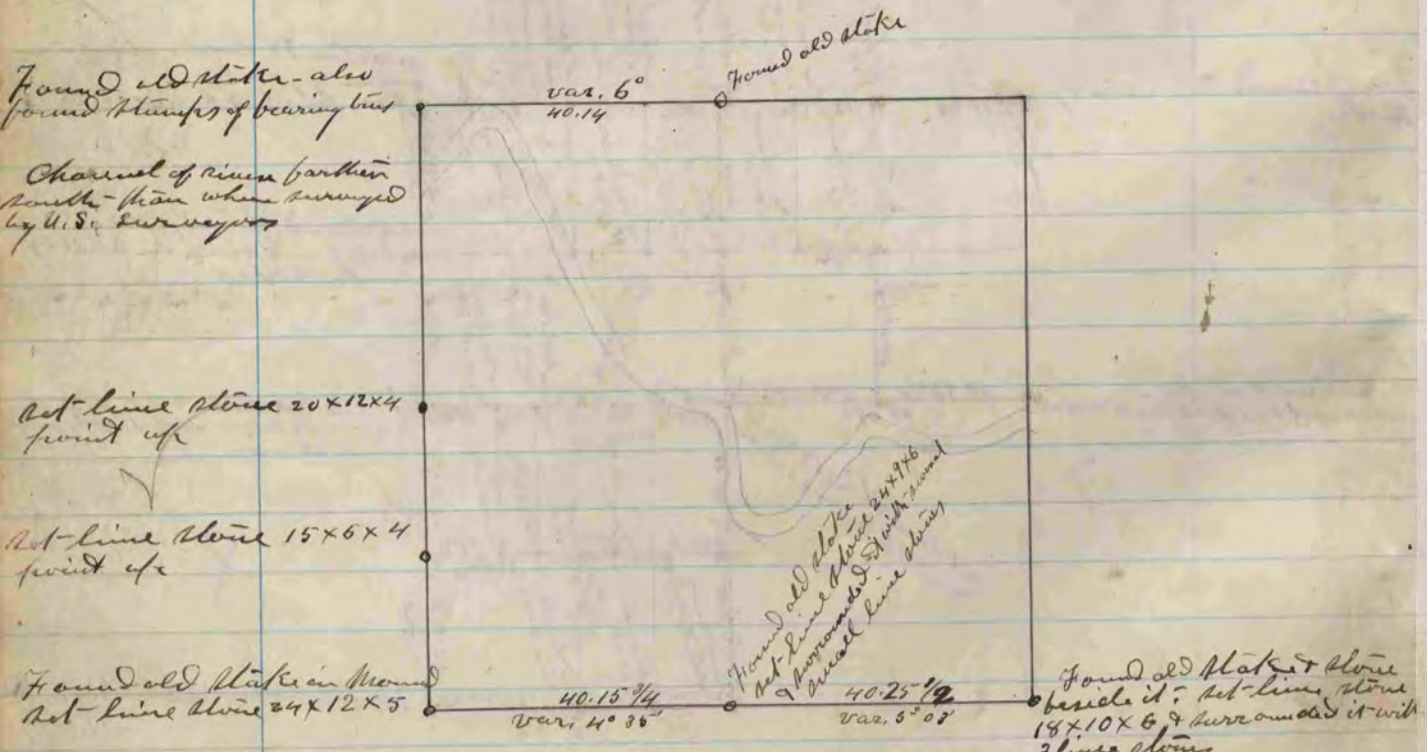 Found old stake - also
found stumps of bearing trees
var. 6°
40.14
Found old stake
Channel of river farther
south than when surveyed
by U.S. Surveyors
set lime stone 20×12×4
point up
set lime stone 15×6×4
point up
Found old stake in Mound
set lime stone 24×12×5
40.15 3/4
var. 4° 35'
Found old stake
set lime stone 24×9×6
& surrounded it with several
small lime stones
40.25 1/2
var. 5° 03'
Found old stake & stone
beside it; set lime stone
18×10×6 & surrounded it with
lime stones